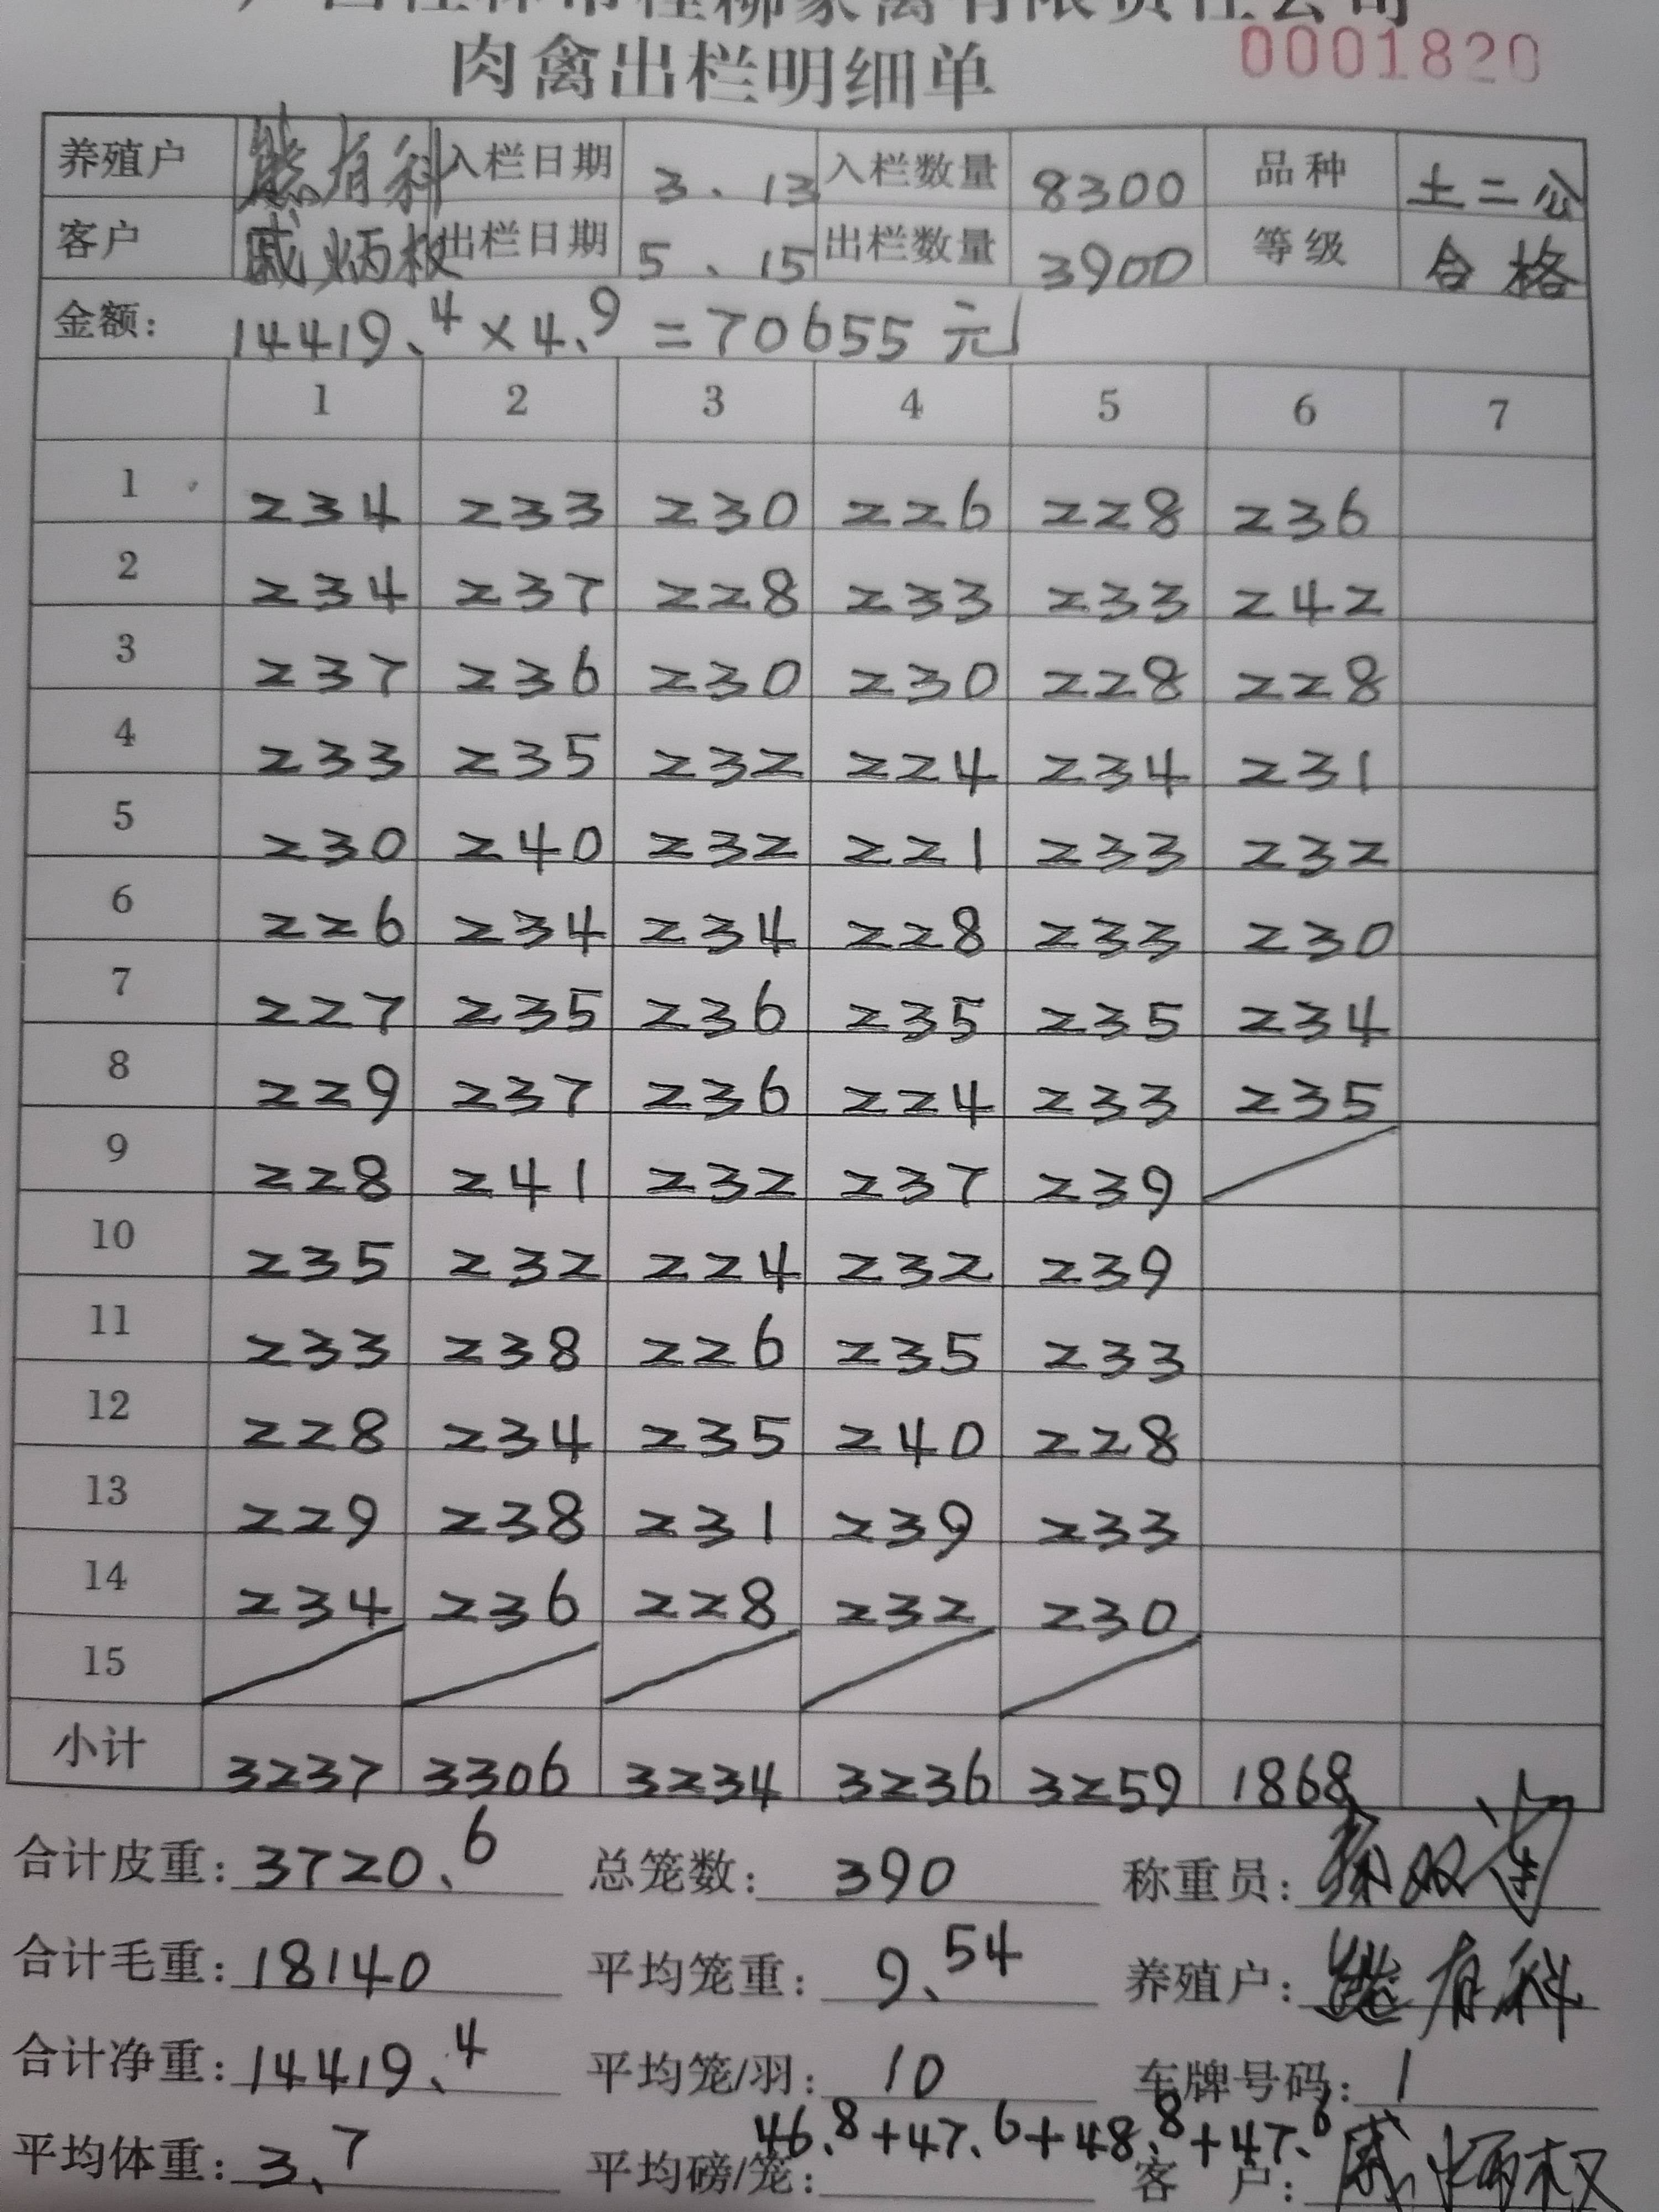 广西桂林市桂柳家禽有限责任公司
肉禽出栏明细单 0001820
养殖户 熊有科 入栏日期 3.13 入栏数量 8300 品种 土二公
客户 戚炳权 出栏日期 5.15 出栏数量 3900 等级 合格
金额: 14419.4×4.9=70655元
1 2 3 4 5 6 7
1 234 233 230 226 228 236
2 234 237 228 233 233 242
3 237 236 230 230 228 228
4 233 235 232 224 234 231
5 230 240 232 221 233 232
6 226 234 234 228 233 230
7 227 235 236 235 235 234
8 229 237 236 224 233 235
9 228 241 232 237 239
10 235 232 224 232 239
11 233 238 226 235 233
12 228 234 235 240 228
13 229 238 231 239 233
14 234 236 228 232 230
15
小计 3237 3306 3234 3236 3259 1868
合计皮重: 3720.6 总笼数: 390 称重员:
合计毛重: 18140 平均笼重: 9.54 养殖户: 熊有科
合计净重: 14419.4 平均笼/羽: 10 车牌号码: 1
46.8+47.6+48.8+47.6
平均体重: 3.7 平均磅/笼: 客户: 戚炳权